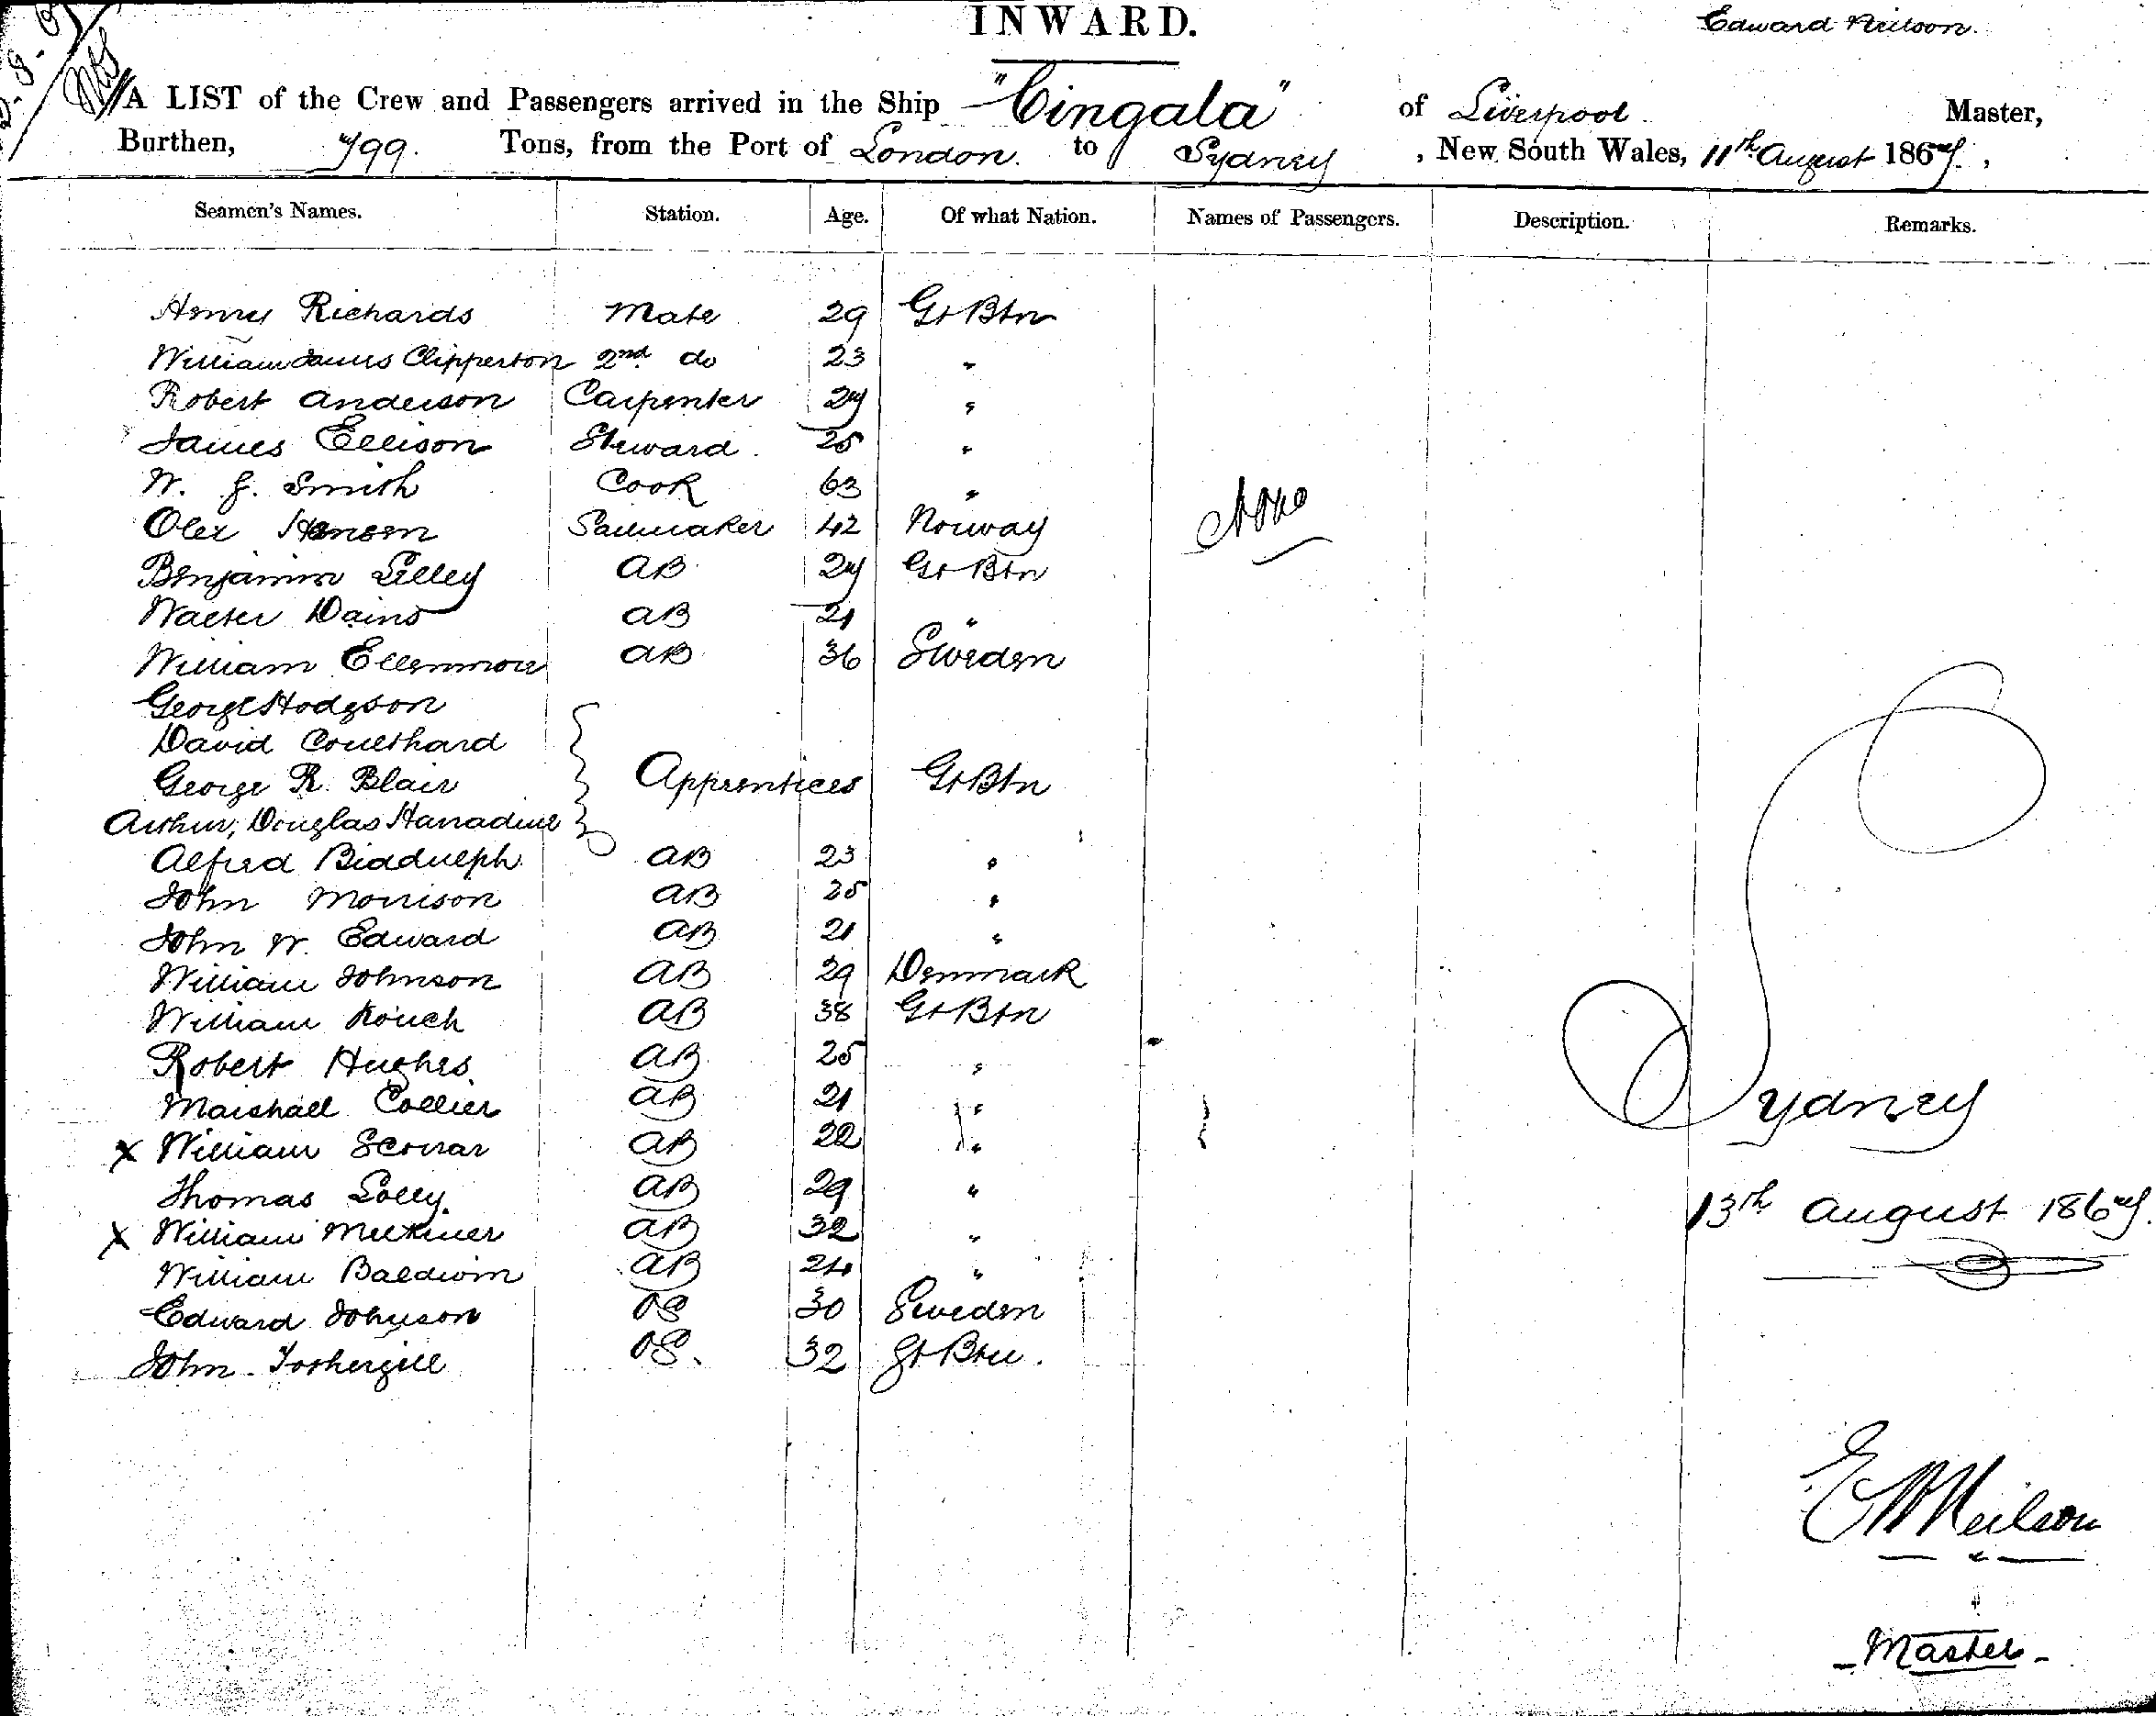 INWARD.
Edward Neilson.
A LIST of the Crew and Passengers arrived in the Ship "Cingala" of Liverpool Master,
Burthen, 799. Tons, from the Port of London. to Sydney, New South Wales, 11th August 1867.,
Seamen's Names. Station. Age. Of what Nation. Names of Passengers. Description. Remarks.
Henry Richards Mate 29 Gt Btn
William James Clipperton 2nd do 23 "
Robert Anderson Carpenter 27 "
James Ellison Steward. 25 "
W. J. Smith Cook 63 "
None
Olex Hansen Sailmaker 42 Norway
Benjamin Lilley AB 27 Gt Btn
Walter Dains AB 21 "
William Ellenmore AB 36 Sweden
George Hodgson
David Coulthard
George R. Blair Apprentices Gt Btn
Arthur, Douglas
Alfred Biddulph AB 23 "
John Morrison AB 25 "
John W. Edward AB 21 "
William Johnson AB 29 Denmark
William Rouch AB 38 Gt Btn
Robert Hughes. AB 25 "
Marshall Collier AB 21 "
Sydney
x William AB 22 "
Thomas Lolly. AB 29 "
13th August 1867.
x William AB 32 "
William Baldwin AB 24 "
Edward Johnson OS 30 Sweden
John Fothergill OS. 32 Gt Btn.
E Neilson
- Master -